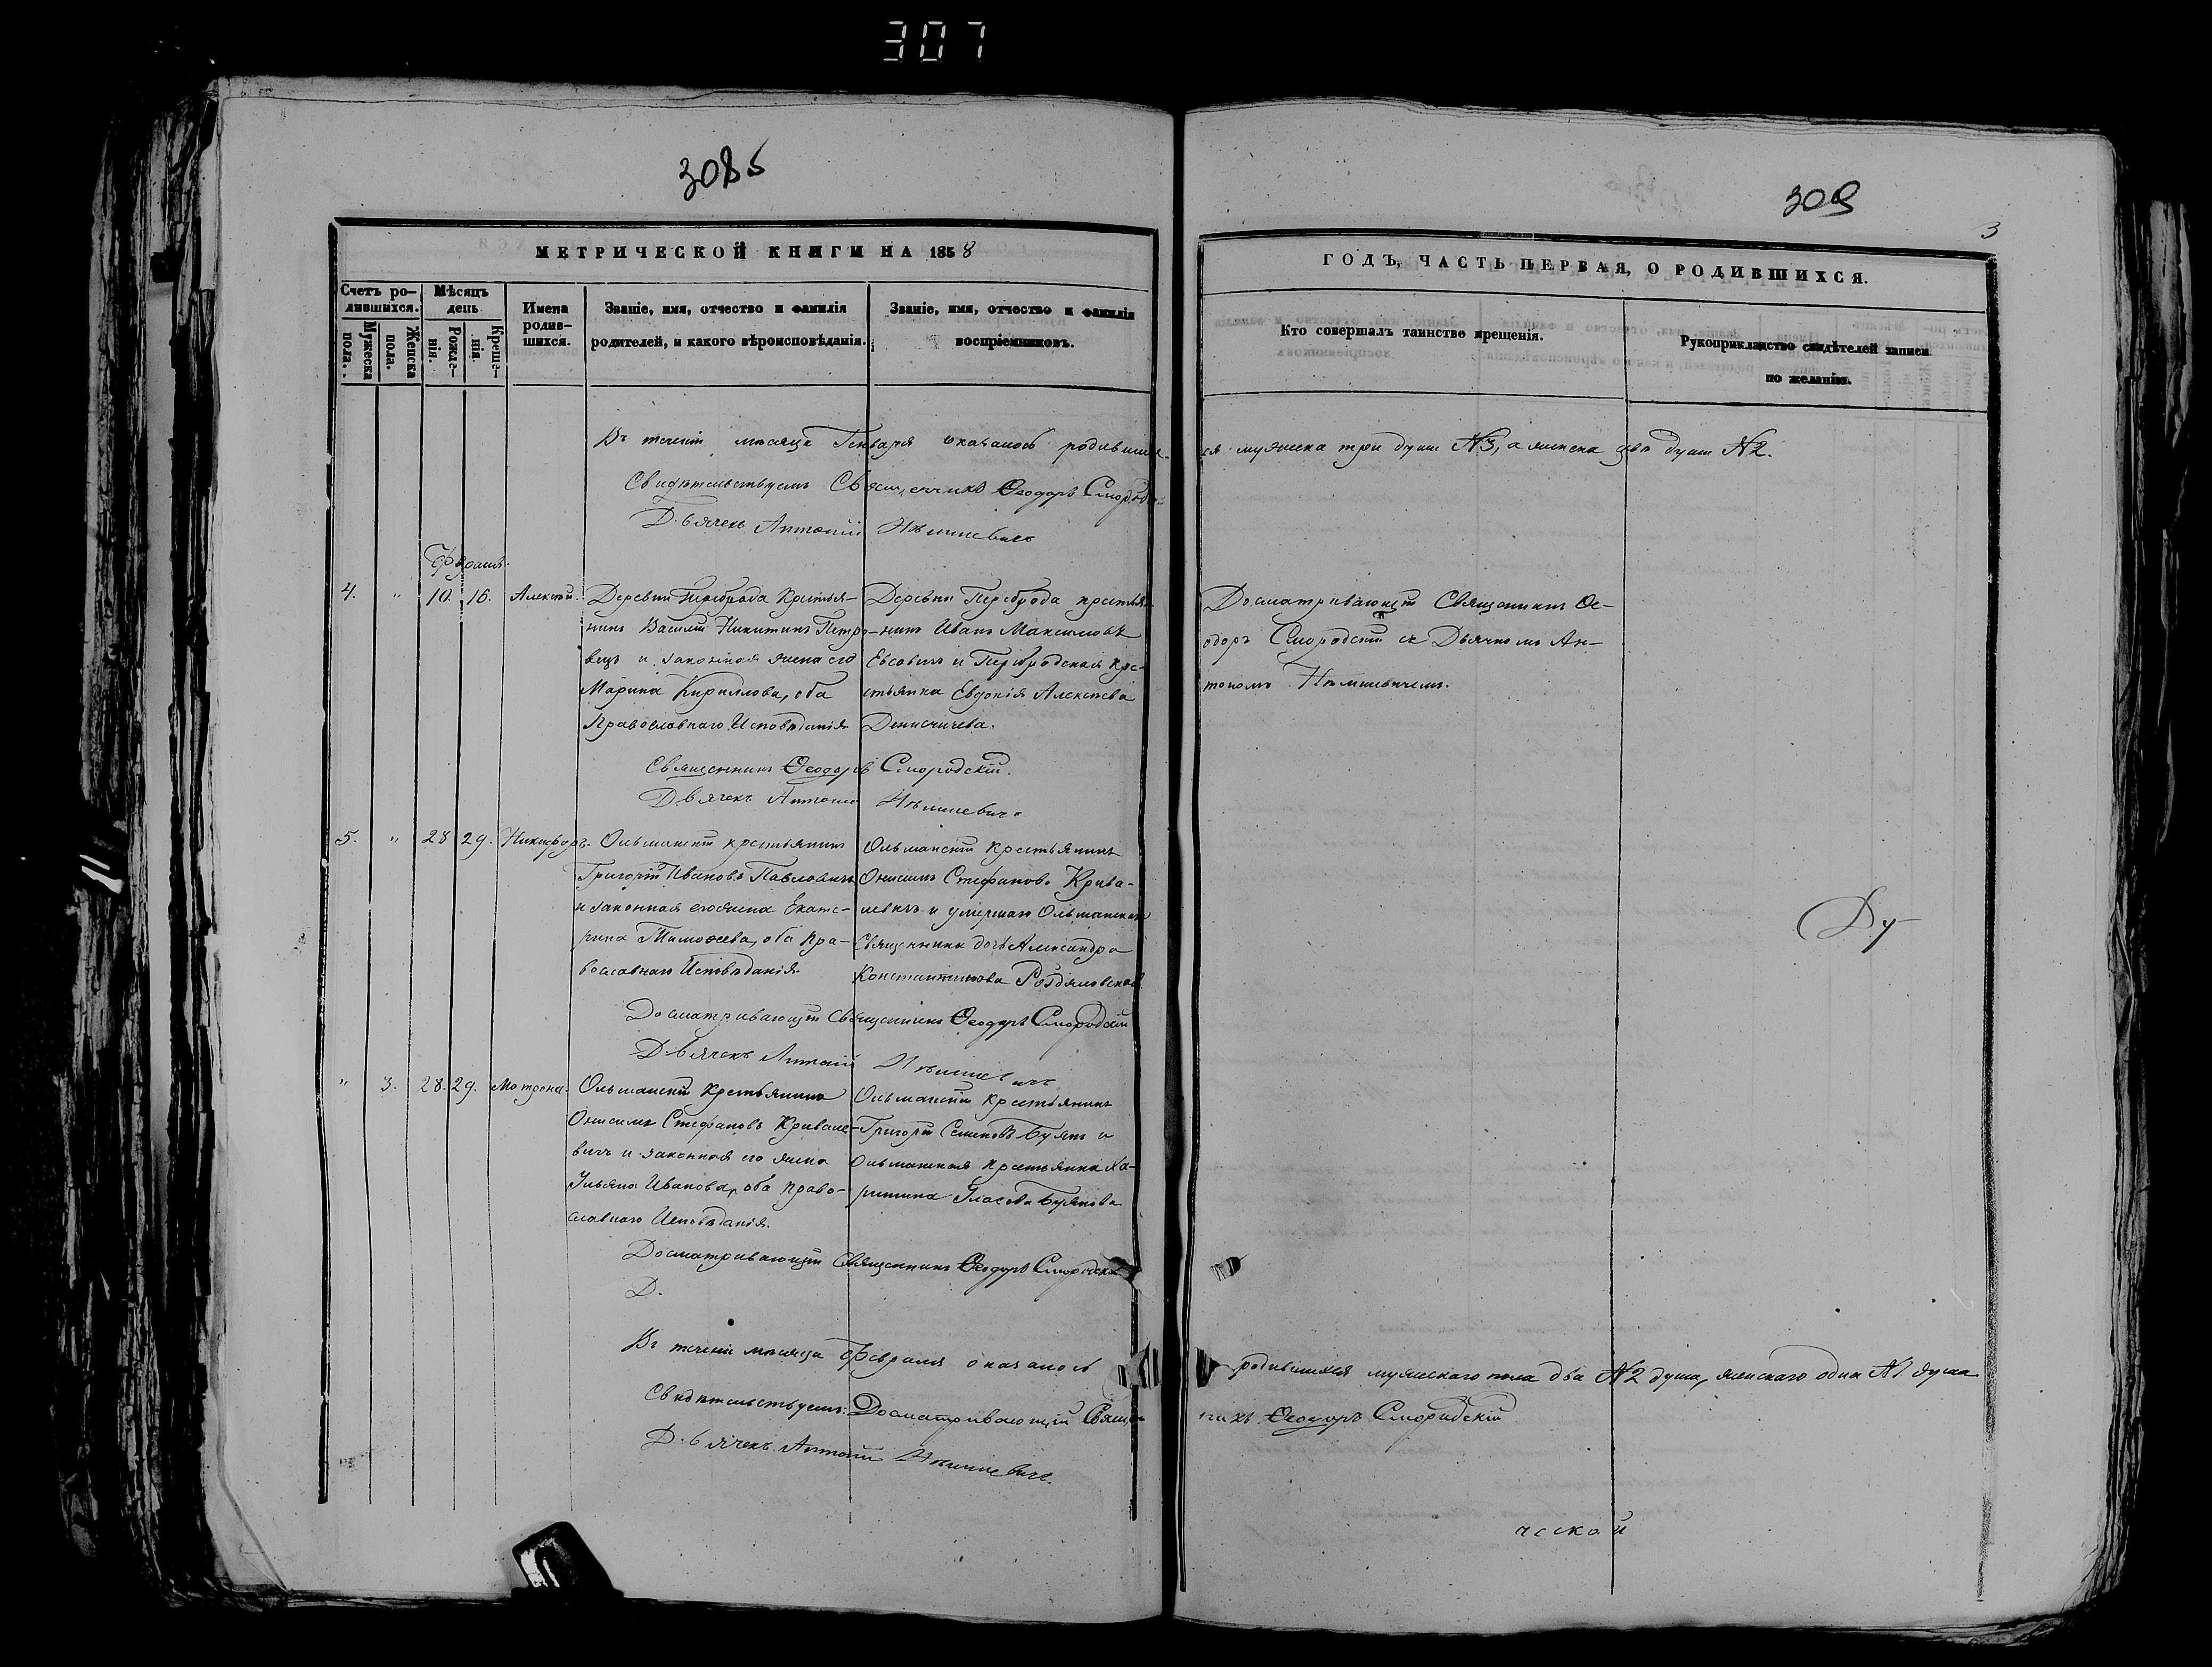 307
308б
309
3
МЕТРИЧЕСКОЙ КНИГИ НА 1858
ГОДЪ, ЧАСТЬ ПЕРВАЯ, О РОДИВШИХСЯ.
Счетъ ро-
дившихся.
Мужеска
пола.
Женска
пола.
Мѣсяцъ
день
Рожде-
нія.
Креще-
нія.
Имена
родив-
шихся.
Званіе, имя, отчество и фамилія
родителей, и какого вѣроисповѣданія.
Званіе, имя, отчество и фамилія
воспріемниковъ.
Кто совершалъ таинство крещенія.
Рукоприкладство свидѣтелей записи
по желанію.
Въ теченіи мѣсяца Генваря оказалось родивших-
ся мужеска три душ №3, а женска двѣ душ №2.
Свидѣтельствуемъ Священникъ Ѳеодоръ Смородс
Дьячекъ Антоній
Февраль.
4. " 10. 16. Алексѣй.
Деревни Переброда Крестья-
нинъ Василій Никитинъ Петро-
вецъ и законная жена его
Марина Кириллова, оба
Православнаго Исповѣданія
Деревни Переброда крестья-
нинъ Иванъ Максимовъ
Евсовичъ и Перебродская кре-
стьянка Евдокія Алексѣева
Денисичева.
Досматривающій Священникъ Ѳе-
одоръ Смородскій съ Дьячкомъ Ан-
тономъ
Священникъ Ѳеодоръ Смородскій.
Дьячекъ Антоній
5. " 28 29. Никифоръ.
Ольманскій крестьянинъ
Григорій Ивановъ Павловичъ
и законная его жена Екате-
рина Тимофеева, оба Пра-
вославнаго Исповѣданія.
Ольманскій крестьянинъ
Онисимъ Стефановъ Крива-
левичъ и умершаго Ольманскаго
Священника дочь Александра
Константинова
Ду-
Досматривающій Священникъ Ѳеодоръ Смородскій
Дьячекъ Антоній
" 3. 28. 29. Матрона.
Ольманскій Крестьянинъ
Онисимъ Стефановъ Кривале-
вичъ и законная его жена
Ульяна Иванова, оба Право-
славнаго Исповѣданія.
Ольманскій крестьянинъ
Григорій Семеновъ Буянъ и
Ольманская крестьянка Ха-
ритина Буянова
Досматривающій Священникъ Ѳеодоръ Смородскій
Д.
Въ теченіи мѣсяца Февраля оказалось
родившихся мужескаго пола два №2 душа, женскаго одна №1 душа
Свидѣтельствуемъ: Досматривающій Священ
никъ Ѳеодоръ Смородскій
Дьячекъ Антоній
ческой